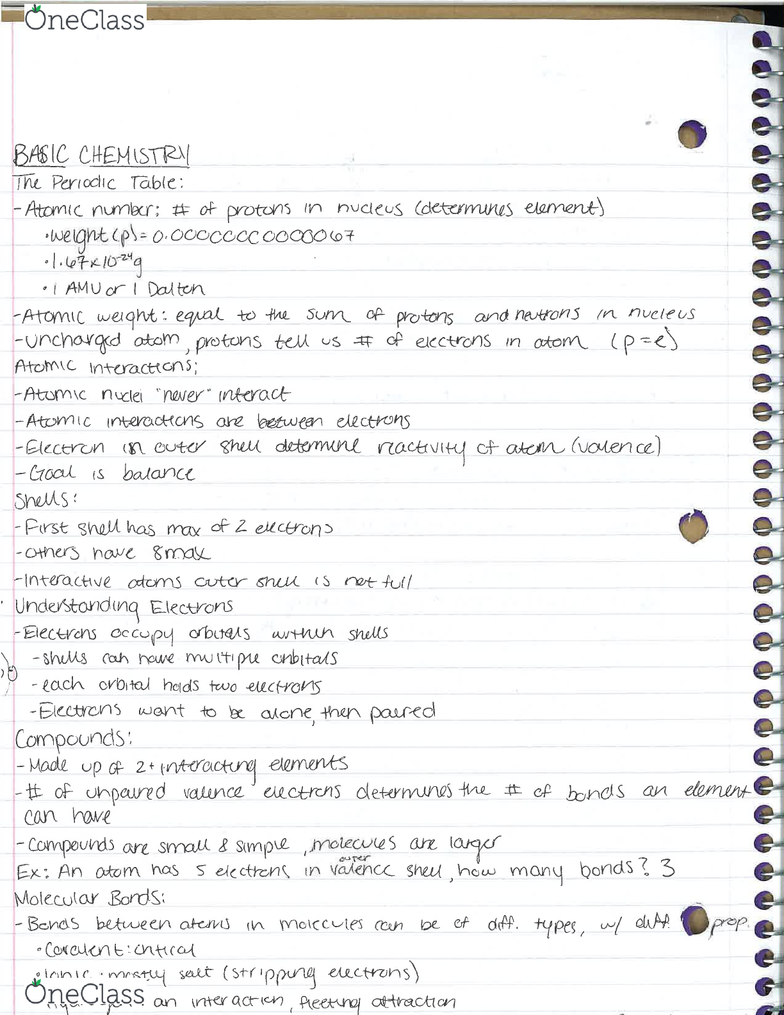 OneClass
BASIC CHEMISTRY
The Periodic Table:
- Atomic number: # of protons in nucleus (determines element)
• weight (p) = 0.00000000000067
• 1.67x10⁻²⁴g
• 1 AMU or 1 Dalton
- Atomic weight: equal to the sum of protons and neutrons in nucleus
- Uncharged atom, protons tell us # of electrons in atom (p=e)
Atomic interactions:
- Atomic nuclei "never" interact
- Atomic interactions are between electrons
- Electron in outer shell determine reactivity of atom (valence)
- Goal is balance
Shells:
- First shell has max of 2 electrons
- others have 8 max
- Interactive atoms outer shell is not full
Understanding Electrons
- Electrons occupy orbitals within shells
- shells can have multiple orbitals
- each orbital holds two electrons
- Electrons want to be alone, then paired
Compounds:
- Made up of 2+ interacting elements
- # of unpaired valence electrons determines the # of bonds an element
can have
- Compounds are small & simple, molecules are larger
outer
Ex: An atom has 5 electrons in valence shell, how many bonds? 3
Molecular Bonds:
- Bonds between atoms in molecules can be of diff. types, w/ diff. prop.
• Covalent: critical
• Ionic: mostly salt (stripping electrons)
OneClass an interaction, fleeting attraction